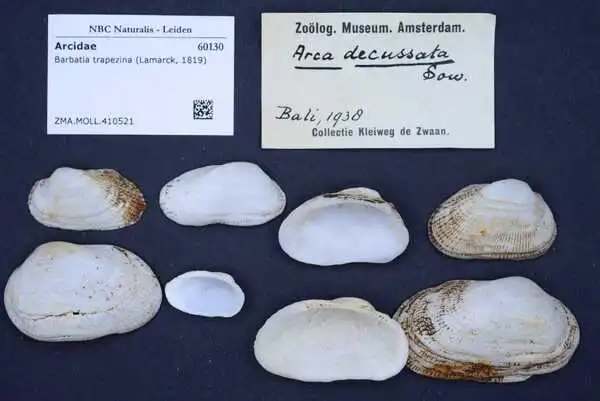 NBC Naturalis - Leiden
Arcidae 60130
Barbatia trapezina (Lamarck, 1819)
ZMA.MOLL.410521
Zoölog. Museum. Amsterdam.
Arca decussata
Sow.
Bali, 1938
Collectie Kleiweg de Zwaan.